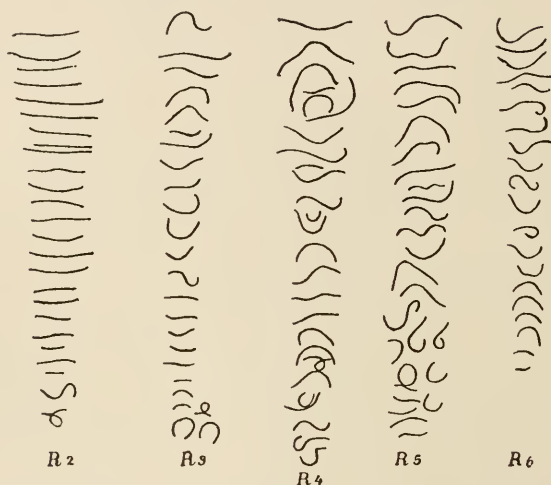 R2 R3 R4 R5 R6